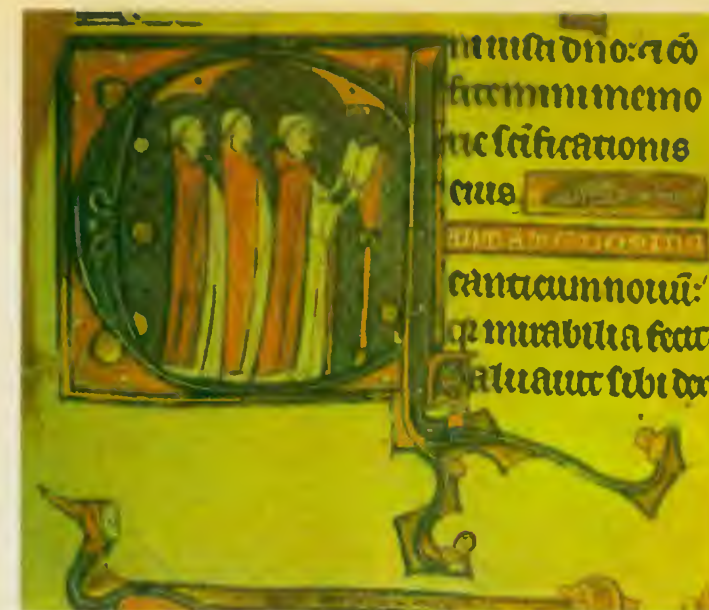 iusti dno: et cō
fitemini memo
rie scīficationis
eius
antate domino
canticum nouū:
qr mirabilia fecit
Saluauit sibi dex